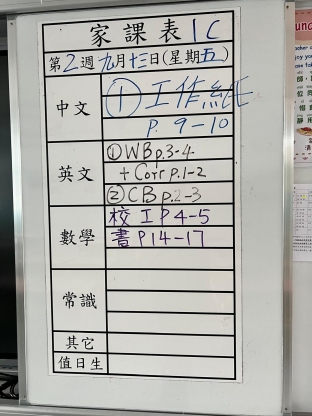 家課表 1C
第2週九月十三日(星期五)
中文 ①工作紙
P. 9-10
英文 ①WB p.3-4
+ Corr p.1-2
②CB p.2-3
數學 校 I P4-5
書 P14-17
常識
其它
值日生